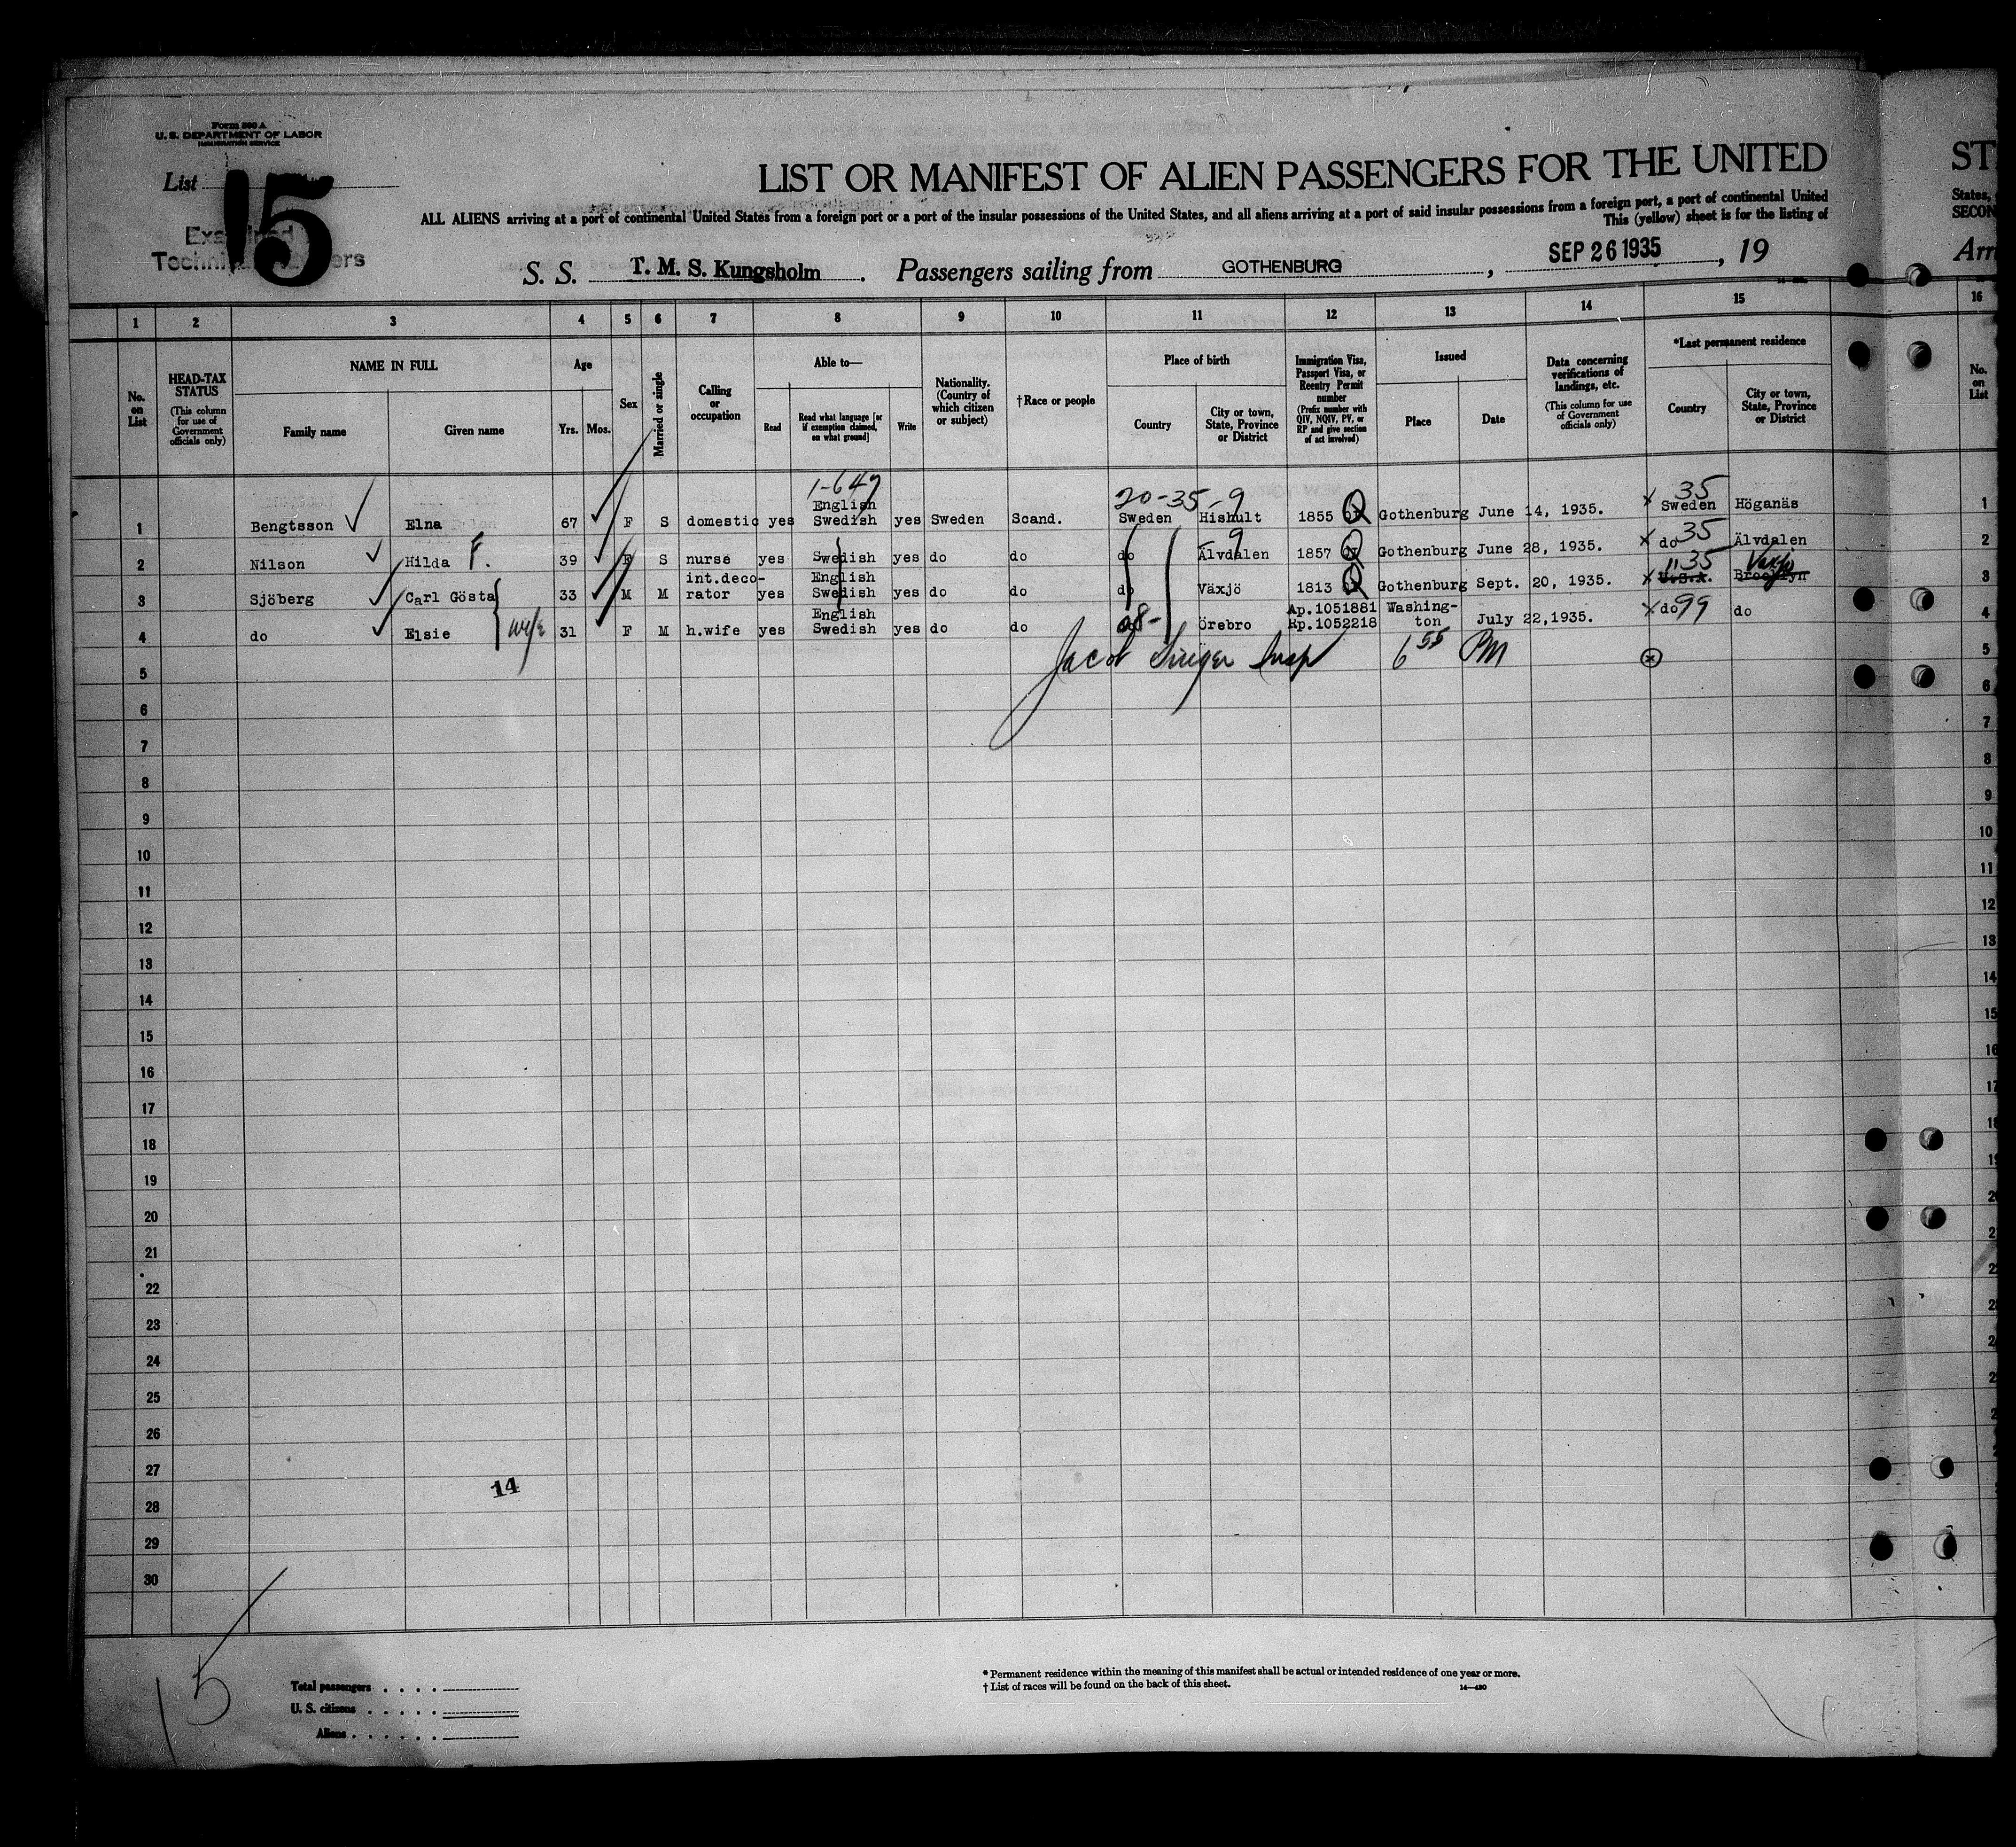 Form 500 A
U. S. DEPARTMENT OF LABOR
IMMIGRATION SERVICE
List
15
LIST OR MANIFEST OF ALIEN PASSENGERS FOR THE UNITED
ST
ALL ALIENS arriving at a port of continental United States from a foreign port or a port of the insular possessions of the United States, and all aliens arriving at a port of said insular possessions from a foreign port, a port of continental United
States,
This (yellow) sheet is for the listing of
SECON
S. S. T. M. S. Kungsholm. Passengers sailing from GOTHENBURG, SEP 26 1935, 19
Arri
1 2 3 4 5 6 7 8 9 10 11 12 13 14 15 16
No. on List
HEAD-TAX STATUS
(This column for use of Government officials only)
NAME IN FULL
Family name
Given name
Age
Yrs. Mos.
Sex
Married or single
Calling or occupation
Able to—
Read
Read what language [or if exemption claimed, on what ground]
Write
Nationality. (Country of which citizen or subject)
†Race or people
Place of birth
Country
City or town, State, Province or District
Immigration Visa, Passport Visa, or Reentry Permit number
(Prefix number with QIV, NQIV, PV, or RP and give section of act involved)
Issued
Place
Date
Data concerning verifications of landings, etc.
(This column for use of Government officials only)
*Last permanent residence
Country
City or town, State, Province or District
No. on List
1-647 20-35-9 35
English
1 Bengtsson Elna 67 F S domestic yes Swedish yes Sweden Scand. Sweden Hishult 1855 Gothenburg June 14, 1935. Sweden Höganäs 1
-9 35
2 Nilson Hilda F. 39 F S nurse yes Swedish yes do do do Älvdalen 1857 Gothenburg June 28, 1935. do Älvdalen 2
int.deco- English " 35 Växjö
3 Sjöberg Carl Gösta 33 M M rator yes Swedish yes do do do Växjö 1813 Gothenburg Sept. 20, 1935. U.S.A. Brooklyn 3
English Ap.1051881 Washing-
4 do Elsie wife 31 F M h.wife yes Swedish yes do do do Örebro Rp.1052218 ton July 22,1935. do 99 do 4
5 Jacob Insp 6 55 PM 5
6 6
7 7
8 8
9 9
10 10
11 11
12 12
13 13
14 14
15 15
16 16
17 17
18
19
20
21
22
23
24
25
26
27
14
28
29
30
15
Total passengers
U. S. citizens
Aliens
* Permanent residence within the meaning of this manifest shall be actual or intended residence of one year or more.
† List of races will be found on the back of this sheet.
14—430